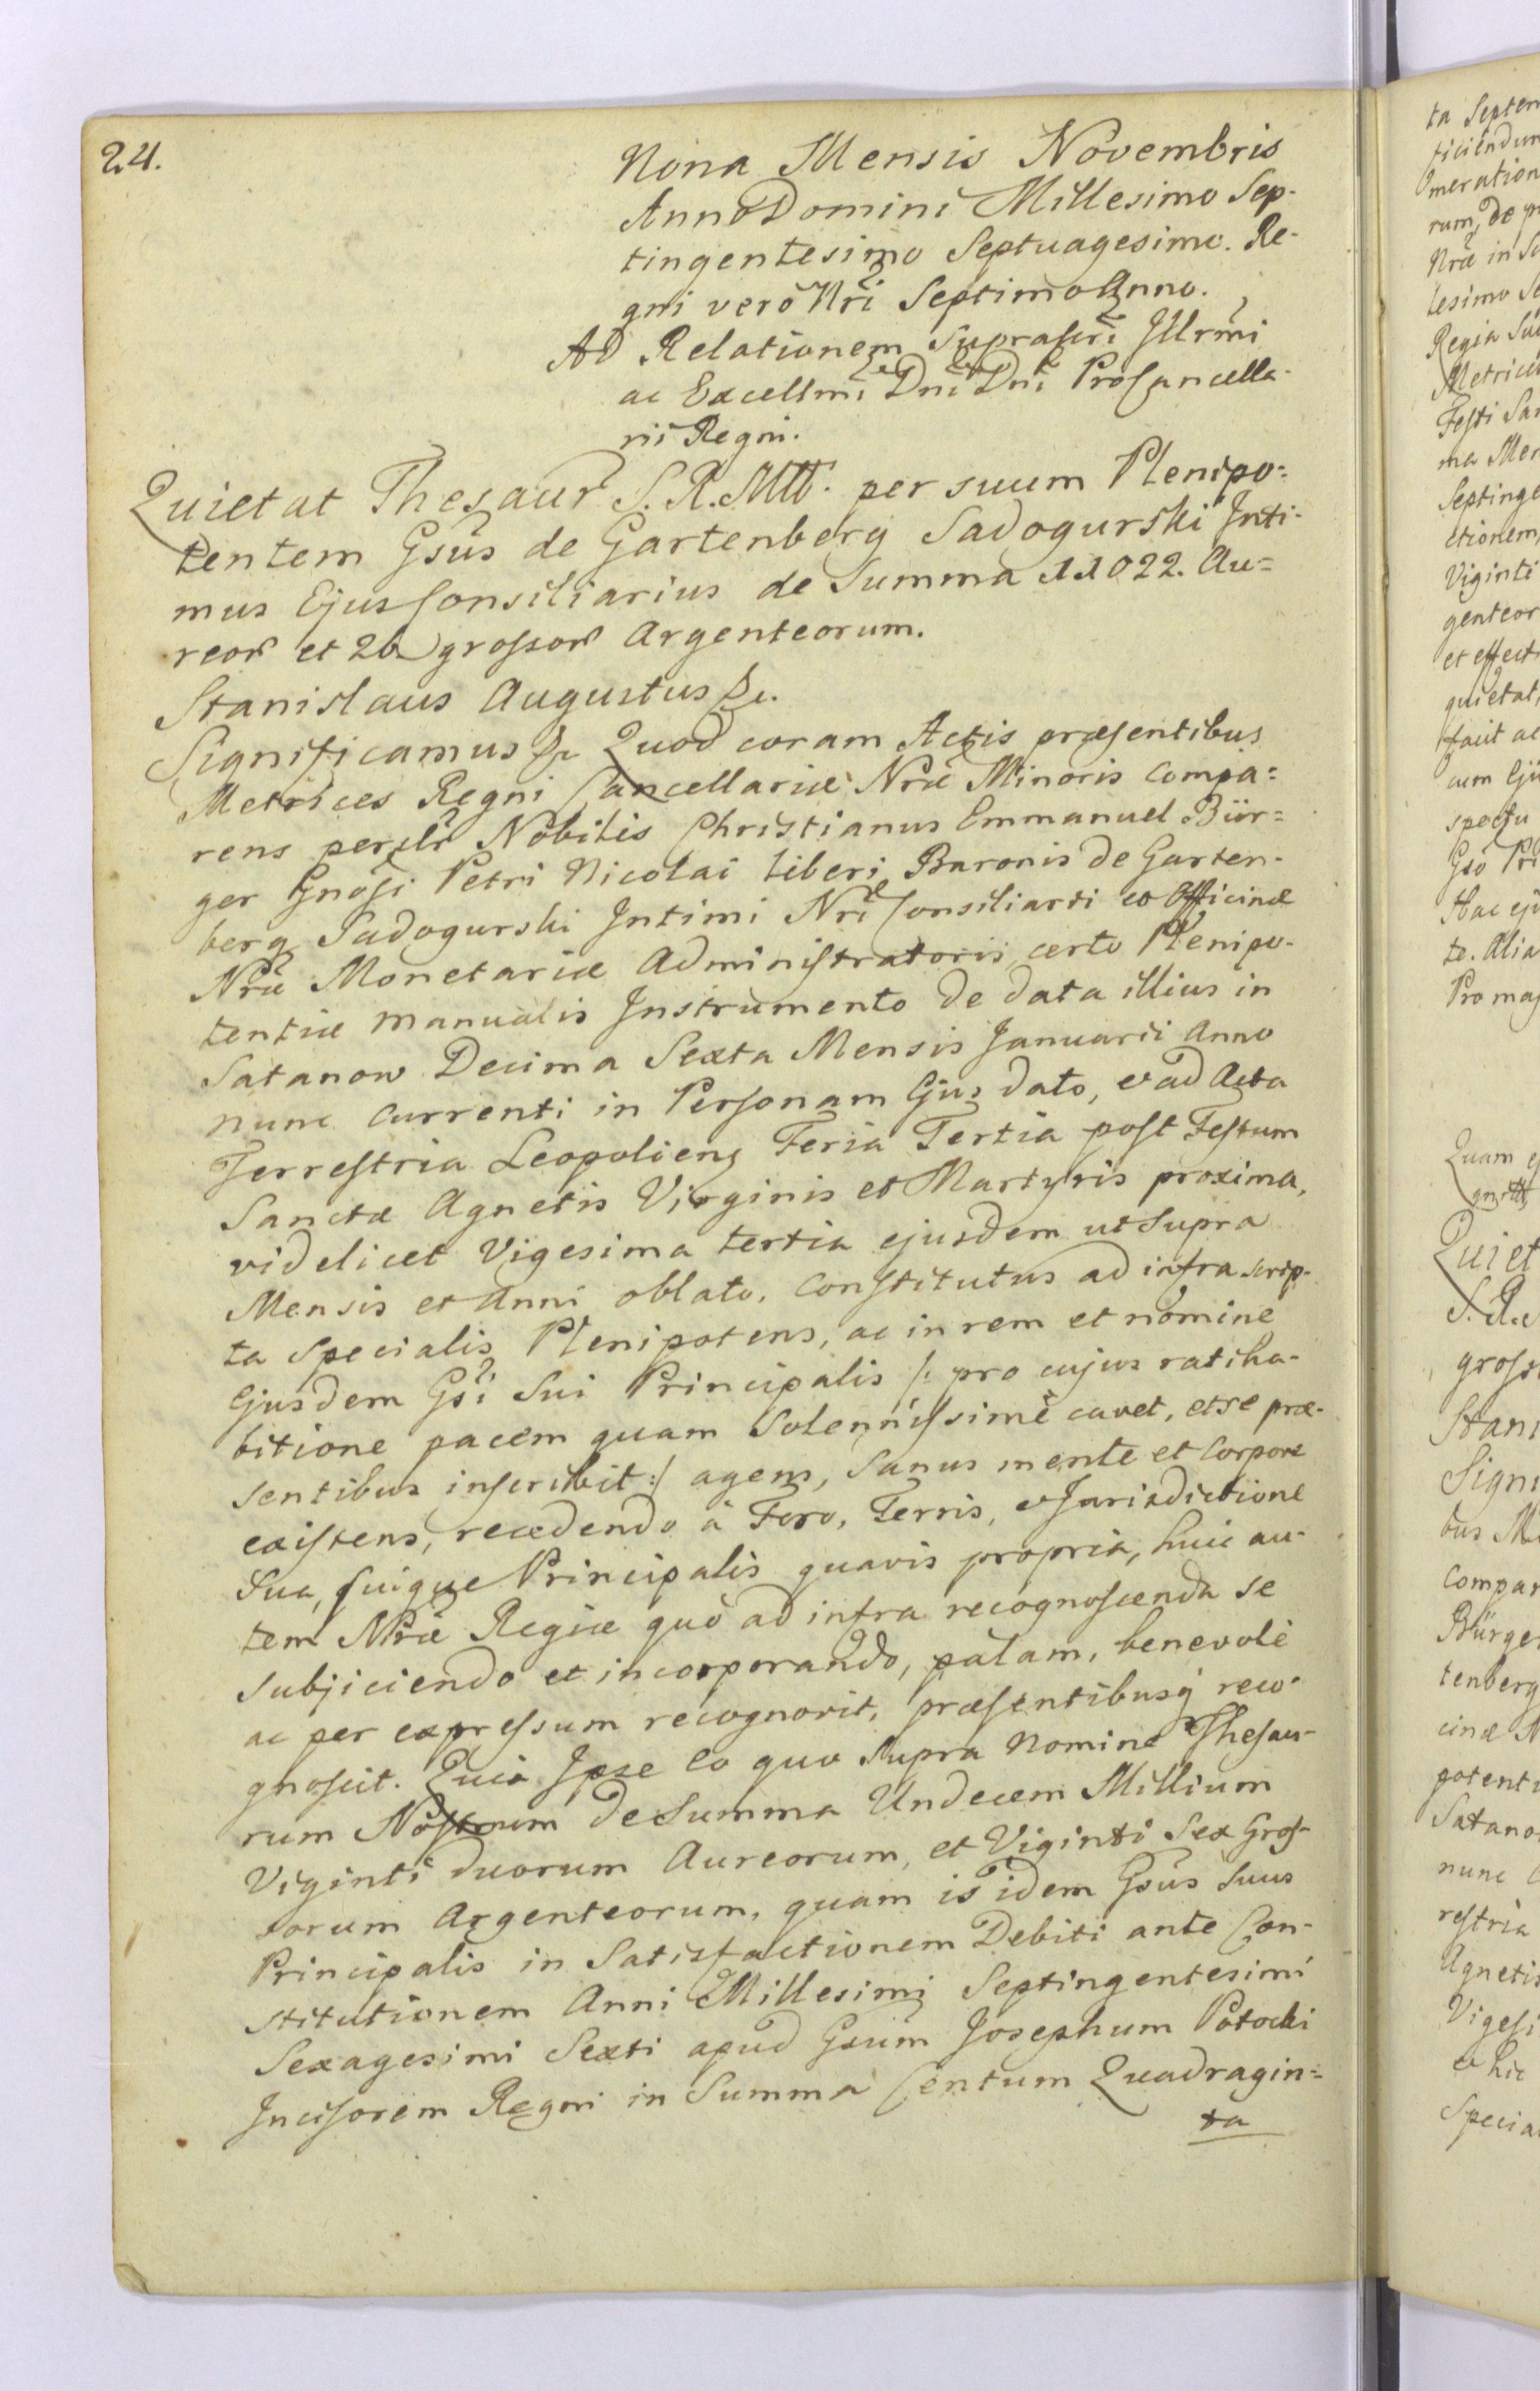 24.
Nona Mensis Novembris
Anno Domini Millesimo Sep-
tingentesimo Septuagesimo. Re-
gni verò Nri Septimo Anno.
Ad Relationem Suprascri Illrmi
ac Excellmi Dni Dni ProCancella-
rii Regni.
Quietat Thesaur S. R. Mtt. per suum Plenipo=
tentem Gsus de Gartenberg Sadogurski Inti-
mus Ejus Consiliarius de Summa 11022. Au=
reor et 26 grossor Argenteorum.
Stanislaus Augustus &c.
Significamus &c Quod coram Actis præsentibus
Metrices Regni Cancellariæ Nræ Minoris compa=
rens persltr Nobilis Christianus Emmanuel Bür=
ger Gnosi Petri Nicolai liberi Baronis de Garten-
berg Sadogurski Intimi Nri Consiliarii et Officinæ
Nræ Monetariæ Administratoris, certo Plenipo-
tentiæ manualis Instrumento de data illius in
Satanow Decima Sexta Mensis Januarii Anno
nunc currenti in Personam Ejus dato, et ad Acta
Terrestria Leopoliens Feria Tertia post Festum
Sanctæ Agnetis Virginis et Martyris proxima,
videlicet Vigesima tertia ejusdem ut supra
Mensis et Anni oblato, constitutus ad infra scrip-
ta specialis Plenipotens, ac in rem et nomine
Ejusdem Gsi Sui Principalis /: pro cujus ratiha-
bitione pacem quam Solennissimè cavet, et se præ-
sentibus inscribit :/ agens, Sanus mente et Corpore
existens, recedendo à Foro, Terris, et Jurisdictione
Sua, suique Principalis quavis propria, huic au-
tem Nræ Regiæ quo ad infra recognoscenda se
subjiciendo et incorporando, palam, benevolè
ac per expressum recognovit, præsentibusq reco-
gnoscit. Quia Ipse Eo quo supra Nomine Thesau-
rum Nostrum de Summa Undecem Millium
Viginti duorum Aureorum, et Viginti Sex Gros-
sorum Argenteorum, quam is idem Gsus Suus
Principalis in Satisfactionem Debiti ante Con-
stitutionem Anni Millesimi Septingentesimi
Sexagesimi Sexti apud Gsum Josephum Potocki
Incisorem Regni in Summa Centum Quadragin=
ta
ta Septem
ficiendum
rum, de
Nræ in
lesimo
Regia
Metrices
Festi
ma
Septinge
ctionem
Viginti
genteor
et effect
quietat,
facit ac
cum
spectu
Gso Pri
Hac
te. Alia
Pro maj
Quam
Quiet
S. R.
gross
Stani
Signi
bus
Compar
Bürge
tenberg
cinæ
potenti
Satano
nunc
restria
Agnetis
Vigesi
et hic
Specia